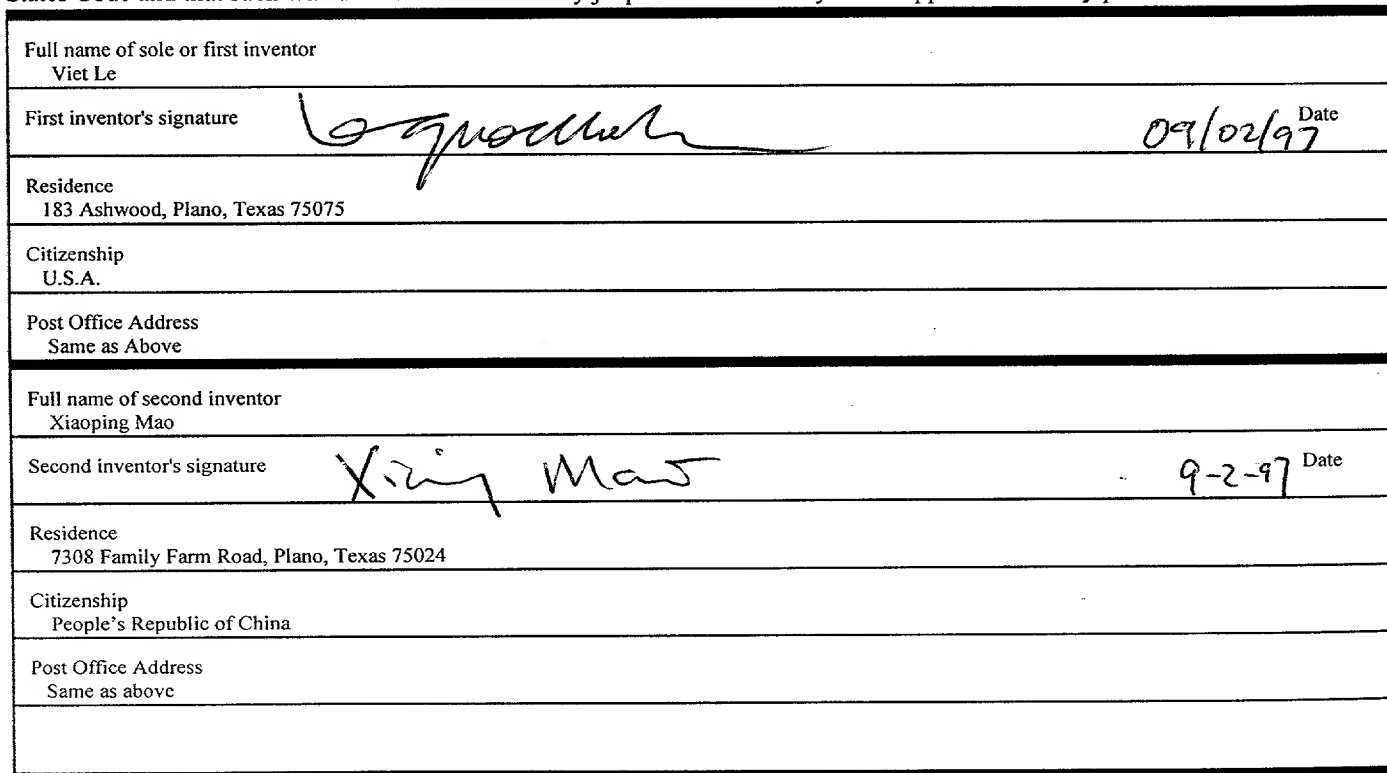 Full name of sole or first inventor
Viet Le
First inventor's signature
09/02/97 Date
Residence
183 Ashwood, Plano, Texas 75075
Citizenship
U.S.A.
Post Office Address
Same as Above
Full name of second inventor
Xiaoping Mao
Second inventor's signature Mao 9-2-97 Date
Residence
7308 Family Farm Road, Plano, Texas 75024
Citizenship
People's Republic of China
Post Office Address
Same as above